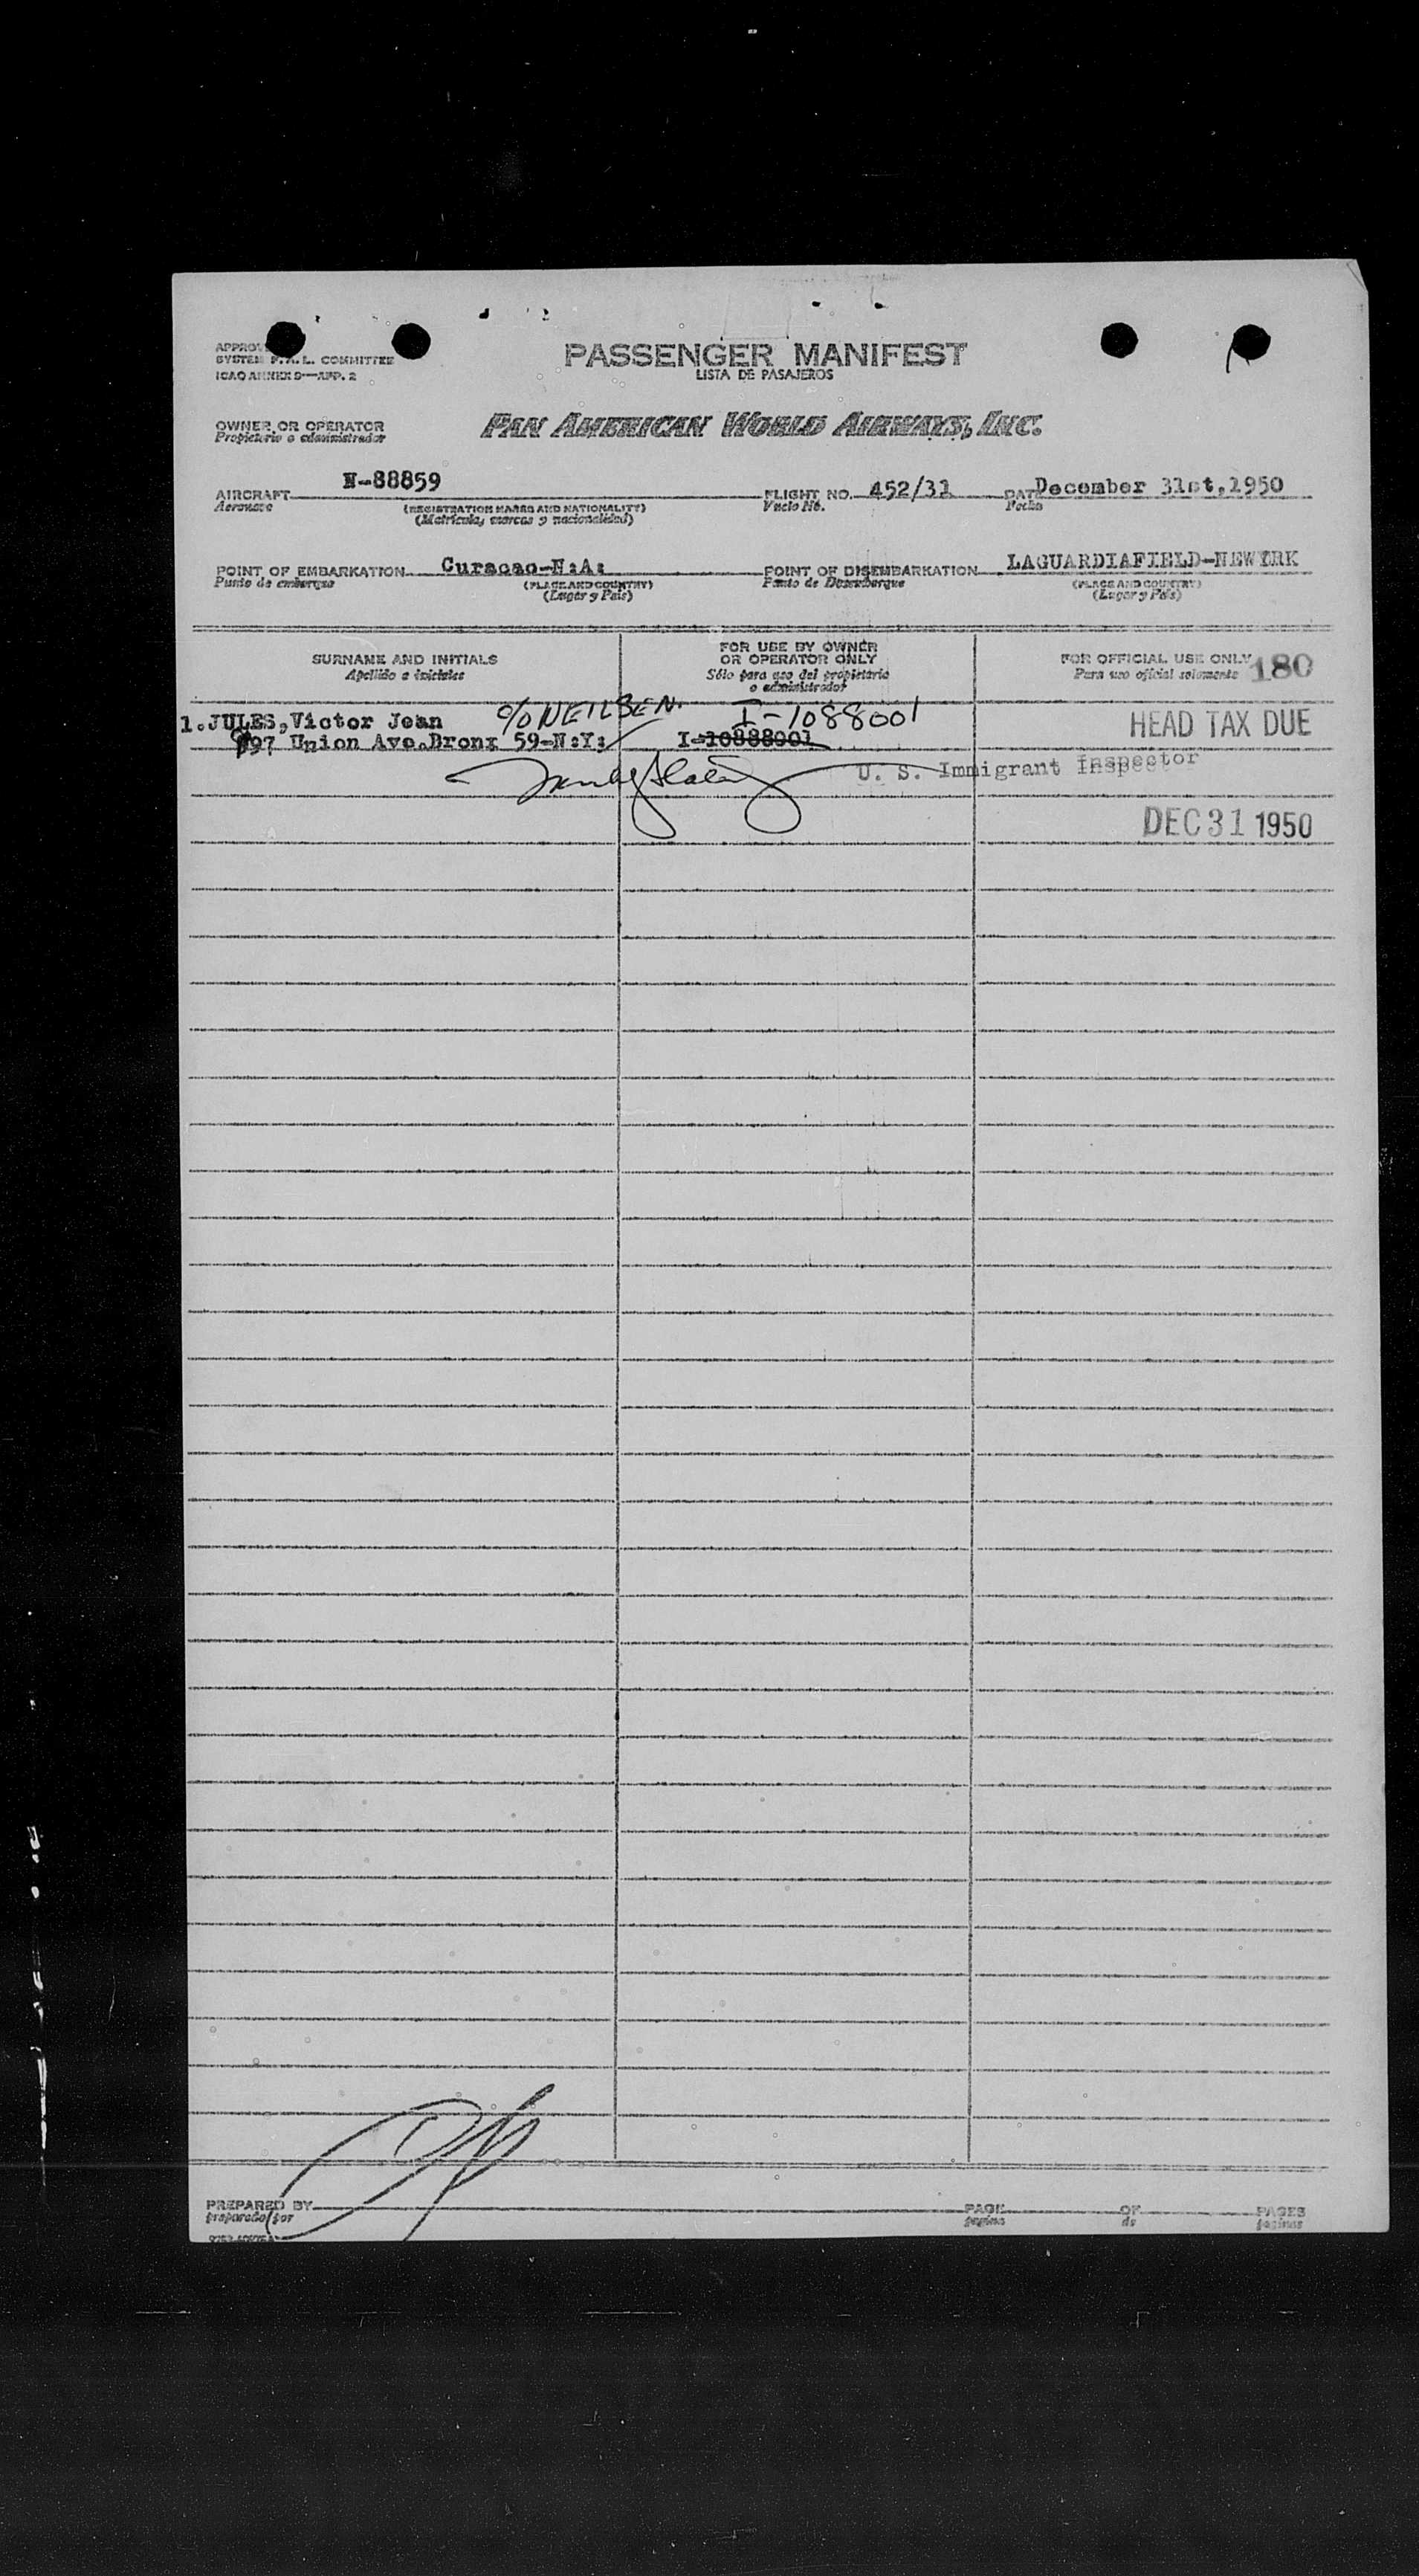 SYSTEM F.A.L. COMMITTEE
ICAO ANNEX 9—APP. 2
PASSENGER MANIFEST
LISTA DE PASAJEROS
OWNER OR OPERATOR
Propietario o administrador
PAN AMERICAN WORLD AIRWAYS, INC.
AIRCRAFT N-88859
Aeronave
(REGISTRATION MARKS AND NATIONALITY)
(Matrícula, marcas y nacionalidad)
FLIGHT NO. 452/31
Vuelo No.
DATE December 31st,1950
Fecha
POINT OF EMBARKATION Curacao-N:A:
Punto de embarque
(PLACE AND COUNTRY)
(Lugar y País)
POINT OF DISEMBARKATION LAGUARDIAFIELD-NEWYORK
Punto de Desembarque
(PLACE AND COUNTRY)
(Lugar y País)
SURNAME AND INITIALS
Apellido e iniciales
FOR USE BY OWNER
OR OPERATOR ONLY
Sólo para uso del propietario
o administrador
FOR OFFICIAL USE ONLY 180
Para uso oficial solamente
1.JULES,Victor Jean c/o NEILSEN. I-1088001 HEAD TAX DUE
997 Union Ave.Bronx 59-N:Y: I-10888001
U. S. Immigrant Inspector
DEC 31 1950
PREPARED BY
preparado por
PAGE OF PAGES
pagina de paginas